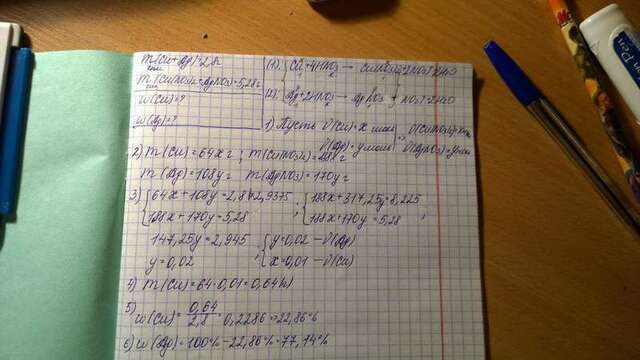 m(Cu+Ag)=2,8г
m(Cu(NO3)2+AgNO3)=5,28г
w(Cu)=?
w(Ag)=?
(1) Cu+4HNO3 → Cu(NO3)2+2NO2+2H2O
(2) Ag+2HNO3 → AgNO3+NO2+H2O
1) Пусть ν(Cu)=x моль
ν(Ag)=y моль
2) m(Cu)=64x г; m(Cu(NO3)2)=188x г
m(Ag)=108y г m(AgNO3)=170y г
3) {64x+108y=2,8 |·2,9375 ; {188x+317,25y=8,225
188x+170y=5,28 188x+170y=5,28 ;
147,25y=2,945 ; {y=0,02 – ν(Ag)
y=0,02 x=0,01 – ν(Cu)
4) m(Cu)=64·0,01=0,64(г)
5) w(Cu)=0,64/2,8=0,2286=22,86%
6) w(Ag)=100%-22,86%=77,14%
Pen